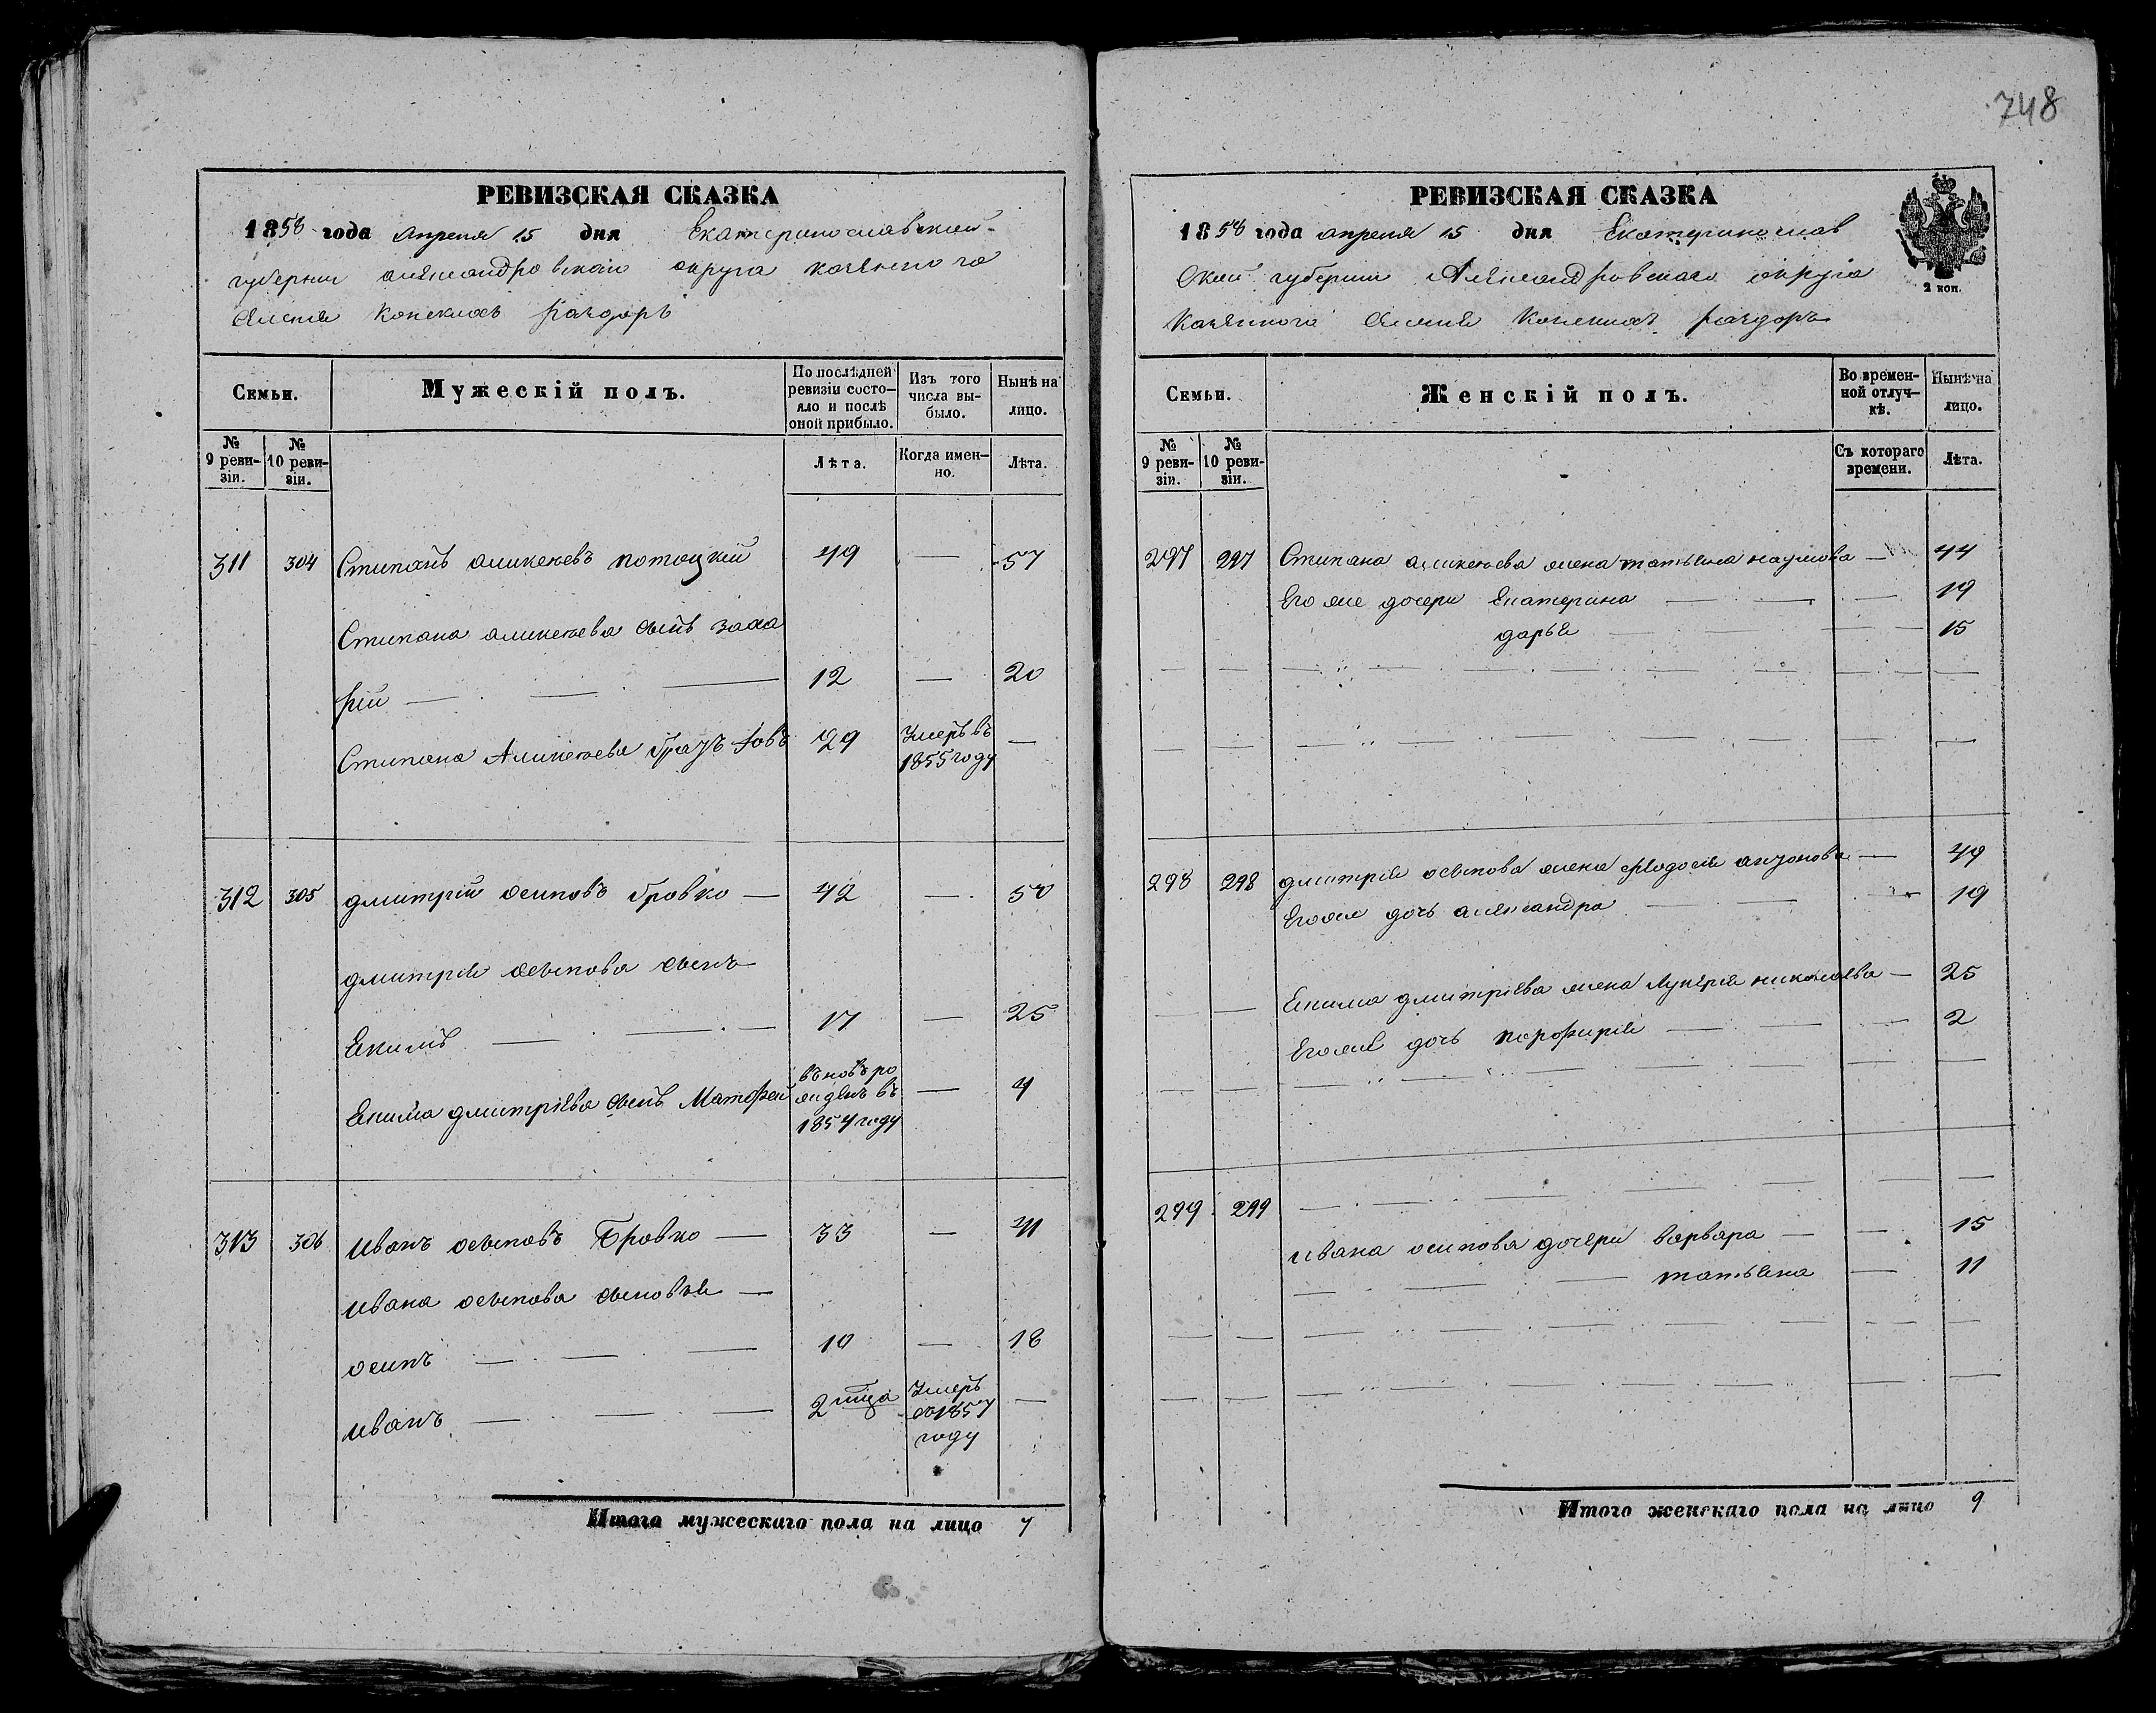 748
РЕВИЗСКАЯ СКАЗКА
1858 года апреля 15 дня Екатеринославской
губернии александровскаго округа казенного
селения Конских раздоръ
Семьи.
Мужескій полъ.
По послѣдней ревизіи состояло и послѣ оной прибыло.
Изъ того числа выбыло.
Нынѣ на лицо.
№ 9 ревизіи.
№ 10 ревизіи.
Лѣта.
Когда именно.
Лѣта.
311 304 Стипанъ аликсеевъ потоцкій 49 — 57
Стипана аликсеева сынъ заха
рій — 12 — 20
Стипана Аликсеева братъ 29 Умеръ въ 1855 году —
312 305 дмитрій осиповъ бровко — 42 — 50
дмитрія осыпова сынъ
Екимъ — 17 — 25
Екима дмитріева сынъ Матфей въновъ рожденъ въ 1854 году — 4
313 306 иванъ осыповъ Бровко — 33 — 41
ивана осыпова сыновья —
осипъ — 10 — 18
иванъ — 2 Умеръ 1857 году —
Итого мужескаго пола на лицо 7
РЕВИЗСКАЯ СКАЗКА
1858 года апреля 15 дня Екатеринослав
ской губернии Александровскаго округа
казенного селения Конских раздоръ
2 коп.
Семьи.
Женскій полъ.
Во временной отлучкѣ.
Нынѣ на лицо.
№ 9 ревизіи.
№ 10 ревизіи.
Съ котораго времени.
Лѣта.
297 297 Стипана аликсеева жена татьяна наумова — 44
Его же дочери Екатерина — 19
дарья — 15
298 298 дмитрія осыпова жена Федосія антонова — 49
Егоже дочь александра — 19
Екима дмитріева жена Лукерія николаева — 25
Егоже дочь парофирія — 2
299 299 —
ивана осипова дочери варвара — 15
татьяна — 11
Итого женскаго пола на лицо 9